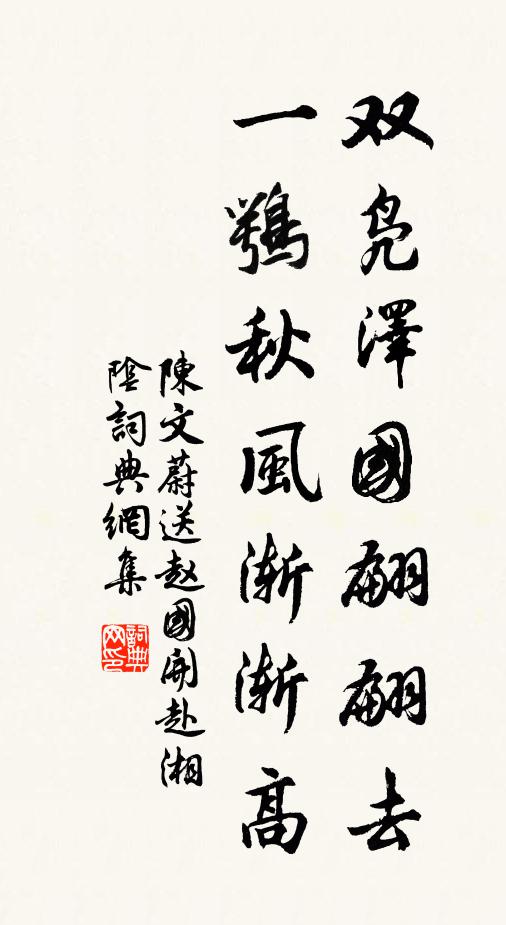 双凫澤國翩翩去
一鶚秋風渐渐高
陳文蔚送赵國開赴湘
陰詞典網集
詞典网印